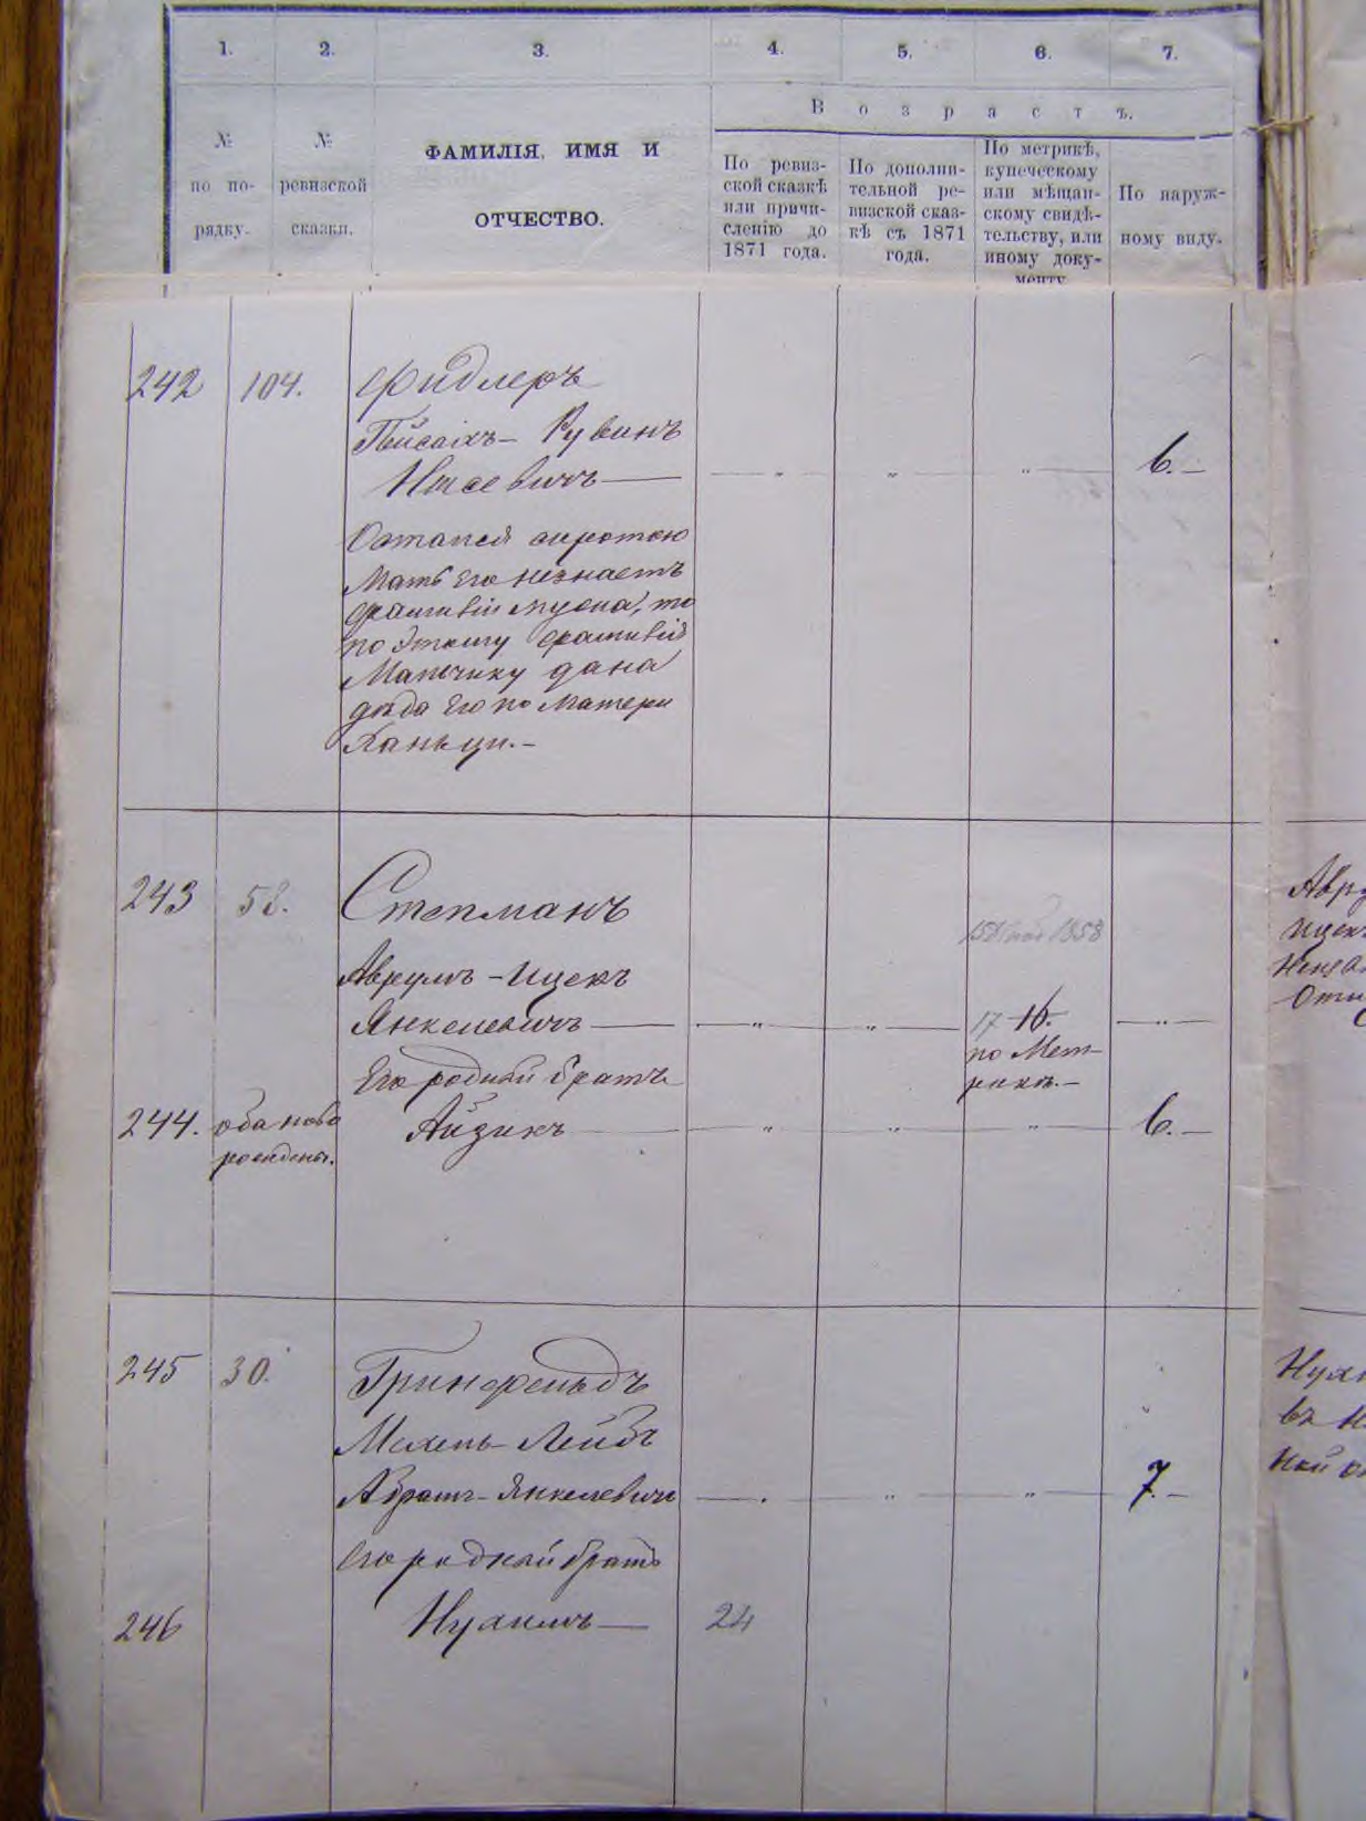 1. 2. 3. 4. 5. 6. 7.
Возрастъ.
№
по по-
рядку.
№
ревизской
сказки.
ФАМИЛІЯ, ИМЯ И
ОТЧЕСТВО.
По ревиз-
ской сказкѣ
или причи-
сленію до
1871 года.
По дополни-
тельной ре-
визской сказ-
кѣ съ 1871
года.
По метрикѣ,
купеческому
или мѣщан-
скому свидѣ-
тельству, или
иному доку-
менту
По наруж-
ному виду.
242 104. Фидлеръ
Пейсахъ - Рувинъ
— „ — „ — „ — 6. —
Остался сиротою
Мать Его незнаетъ
фамиліи мужа, то
по этому фамилія
Мальчику дана
дѣда Его по матери
Ханьци. —
243 58. Степманъ
1858
Аврумъ - Ицекъ
Янкелевичъ — „ — „ — 17 16. — „ —
по Мет-
рикѣ. —
Его родный братъ
244. оба ново Айзикъ — „ — „ — „ — 6. —
рожденн.
245 30. Гринфельдъ
Мехель - Лейбъ
Абрамъ - Янкелевичъ — „ — „ — „ — 7. —
Его родный братъ
246 Нухимъ — 24
Авру
Ицек
Отц
Нухи
въ
ной